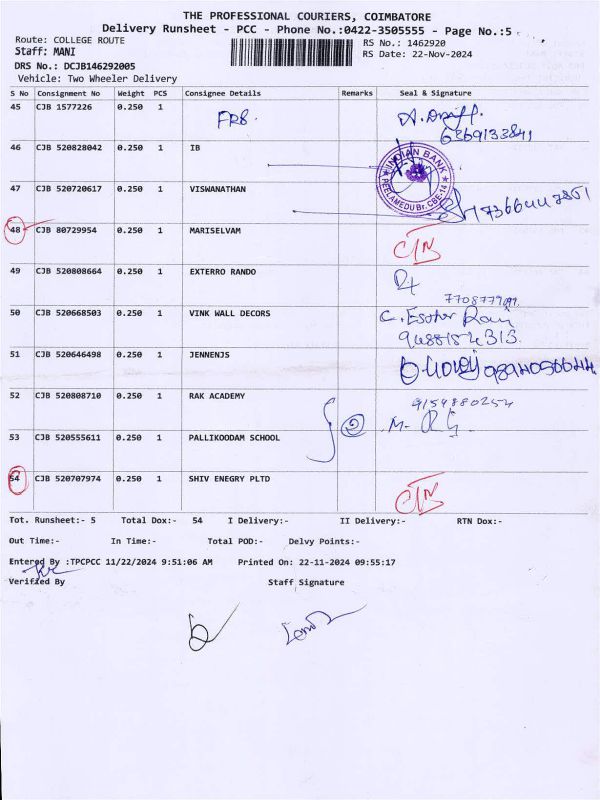 THE PROFESSIONAL COURIERS, COIMBATORE
Delivery Runsheet - PCC - Phone No.:0422-3505555 - Page No.:5
Route: COLLEGE ROUTE
RS No.: 1462920
Staff: MANI
RS Date: 22-Nov-2024
DRS No.: DCJB146292005
Vehicle: Two Wheeler Delivery
S No Consignment No Weight PCS Consignee Details Remarks Seal & Signature
45 CJB 1577226 0.250 1 FRB.
6369133841
46 CJB 520828042 0.250 1 IB
INDIAN BANK
PEELAMEDU Br. CBE-14
47 CJB 520720617 0.250 1 VISWANATHAN
48 CJB 80729954 0.250 1 MARISELVAM
49 CJB 520808664 0.250 1 EXTERRO RANDO
50 CJB 520668503 0.250 1 VINK WALL DECORS C. Esther Rani
9488154313.
51 CJB 520646498 0.250 1 JENNENJS
52 CJB 520808710 0.250 1 RAK ACADEMY 9154880254
53 CJB 520555611 0.250 1 PALLIKOODAM SCHOOL
54 CJB 520707974 0.250 1 SHIV ENEGRY PLTD
Tot. Runsheet:- 5 Total Dox:- 54 I Delivery:- II Delivery:- RTN Dox:-
Out Time:- In Time:- Total POD:- Delvy Points:-
Entered By :TPCPCC 11/22/2024 9:51:06 AM Printed On: 22-11-2024 09:55:17
Verified By Staff Signature